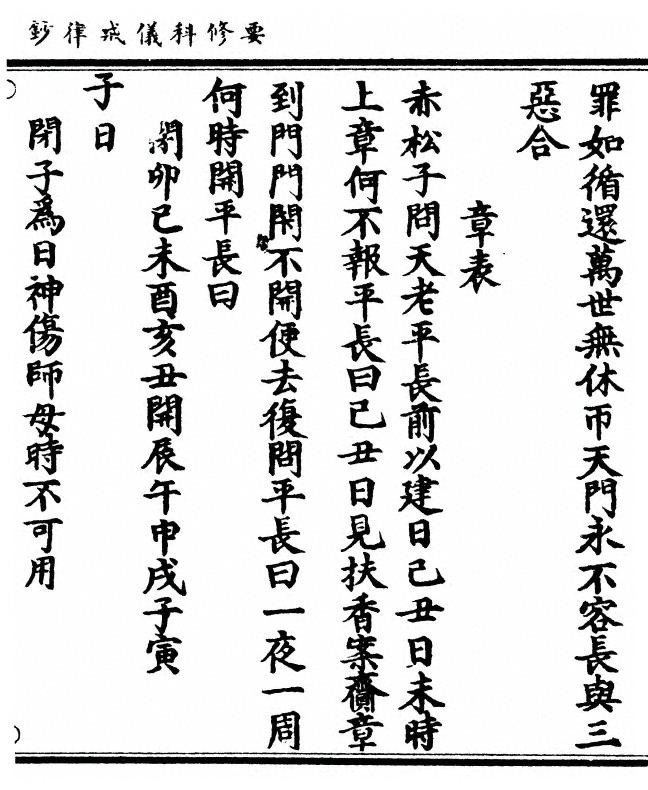 要修科儀戒律鈔
罪如循還萬世無休帀天門永不容長與三
惡合
章表
赤松子問天老平長前以建日己丑日未時
上章何不報平長曰己丑日見扶香案齎章
到門門閉不開便去復問平長曰一夜一周
何時開平長曰
閉卯巳未酉亥丑開辰午申戌子寅
子日
閉子為日神傷師母時不可用